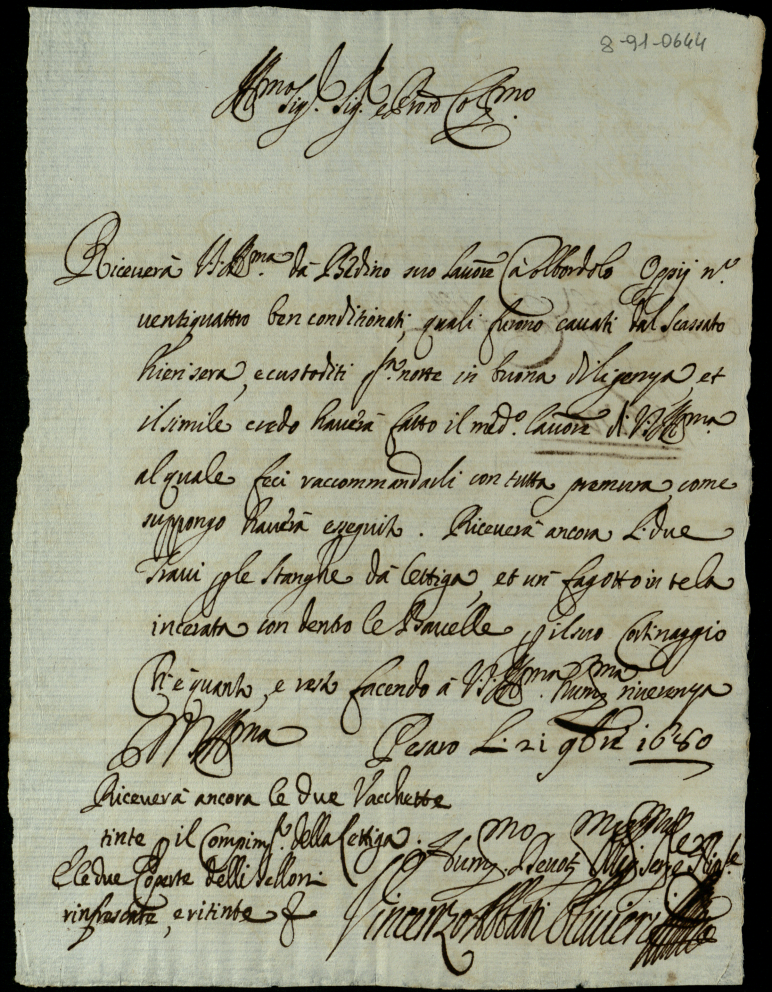 8-91-0644
Ill.mo Sig.r Sig.r e Pron Col.mo
Riceverà V.S. Ill.ma da Bedino suo lavore Oppij n.o
ventiquattro ben conditionati, quali furono cavati dal scassato
hierisera, e custoditi notte in buona diligenza, et
il simile credo haverà fatto il med.o lavore di V.S. Ill.ma
al quale feci raccommandarli con tutta premura, come
suppongo haverà eseguito. Riceverà ancora li due
Travi p le stanghe da lettiga, et un fagotto in tela
incerata con dentro le Bacelle p il suo Cortinaggio
Ch'è quanto, e resto facendo à V.S. Ill.ma hum.ma riverenza
D V S Ill.ma Pesaro Li 21 9bre 1680
Riceverà ancora le due Vacchette
tinte p il Compim.to della Lettiga.
E le due Coperte delli selloni
rinfrescate, e ritinte
Hum.mo Devot.mo
Vincenzo Abbati Olivieri